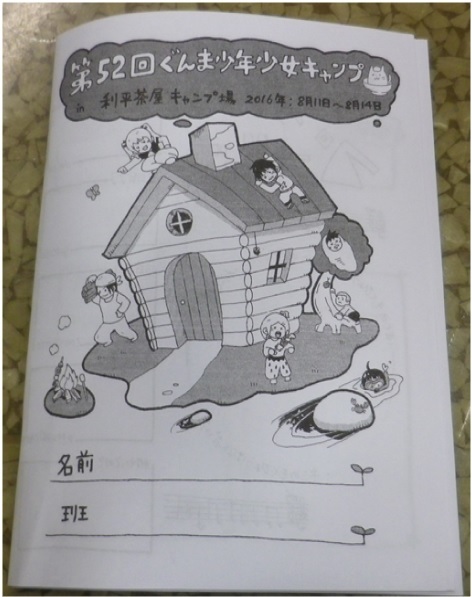 第52回ぐんま少年少女キャンプ
in 利平茶屋キャンプ場 2016年:8月11日~8月14日
名前
班